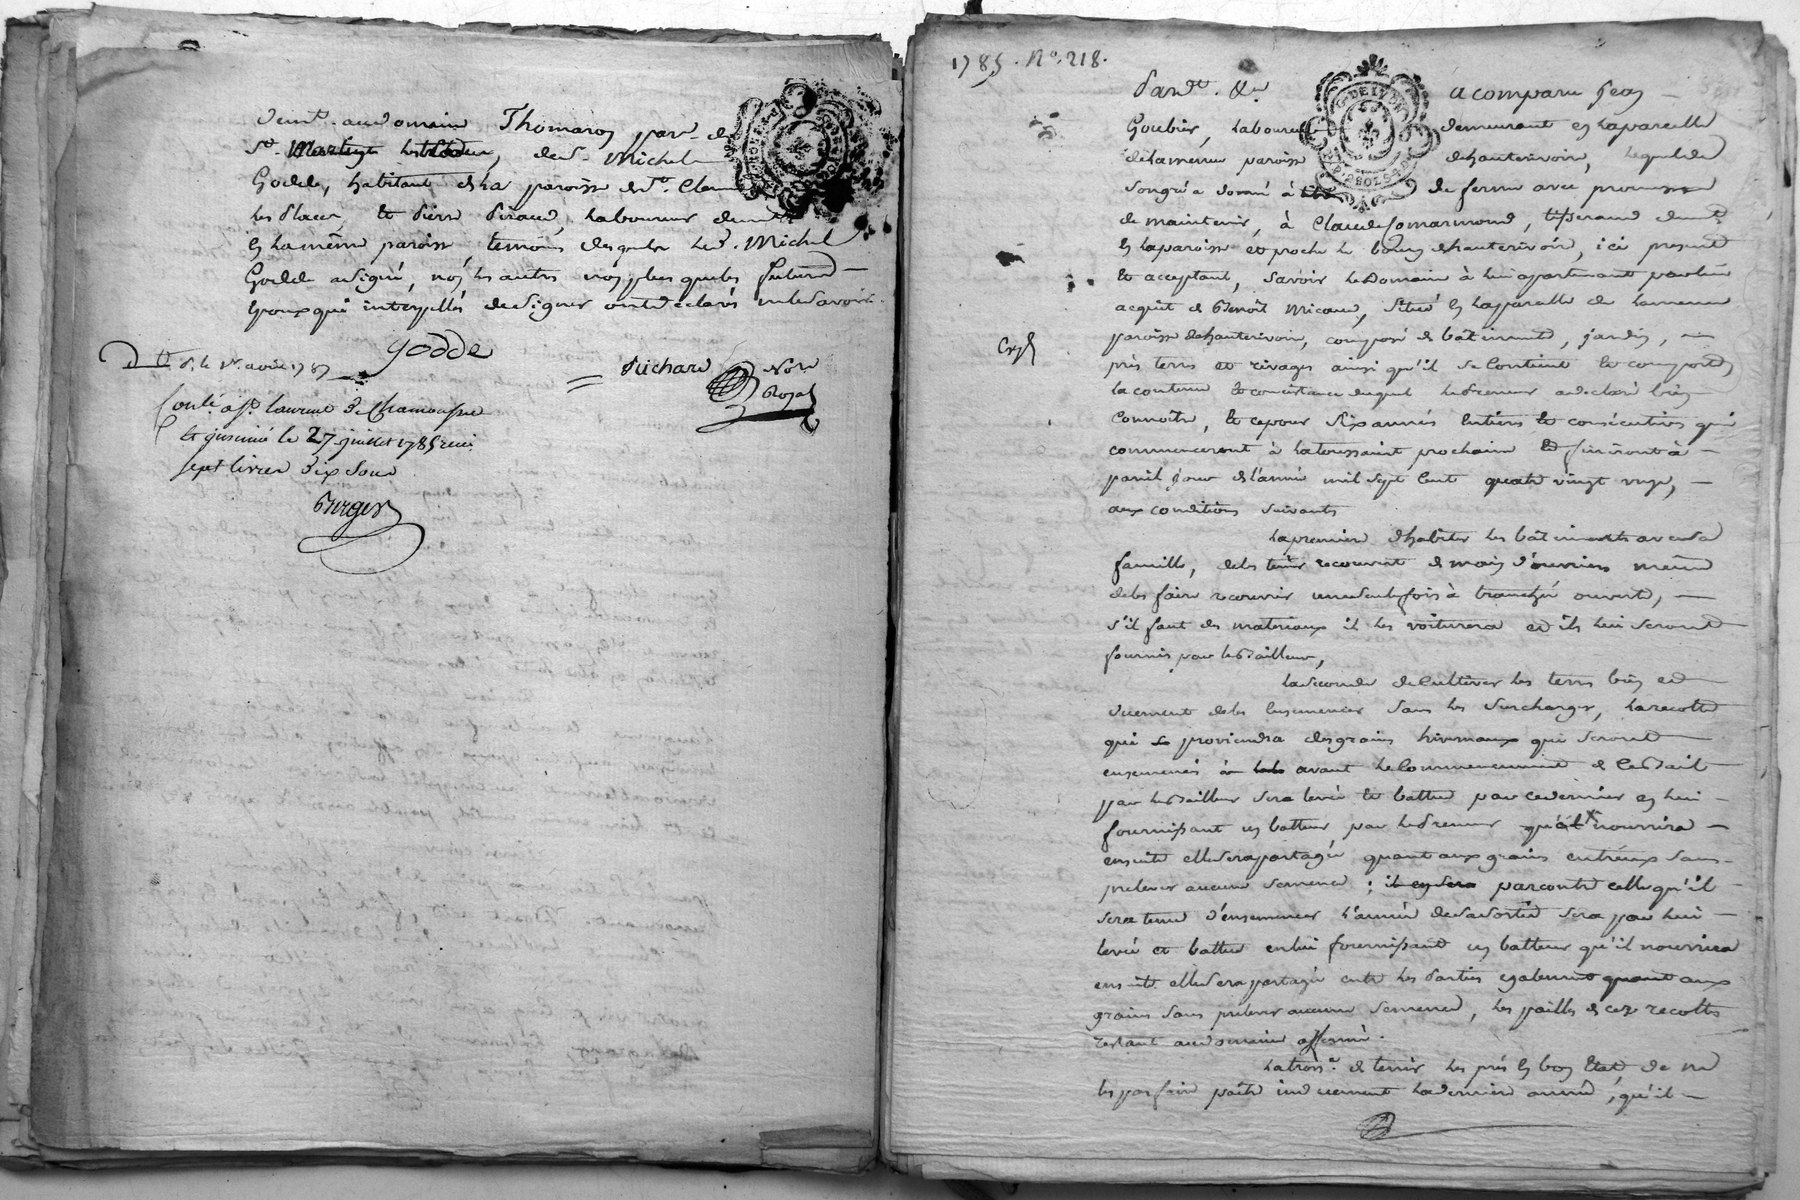 demt. au domaine Thomaron par. de
St. les deux, de S. Michel
Godde, habitant de la paroisse de St. Clement
les Places, et Pierre Giraud, laboureur demt.
en la même paroisse temoins desquels led. S. Michel
Godde a signé, non les autres non plus que les futurs
Epoux qui interpellés de signer ont declaré ne le savoir.
Godde
Dt. p. le 1er. août 1785
Richard Nore
Royal
Conlé. a St. Laurent de Chamousset
et insinué le 27 juillet 1785 reçu
sept livres dix sous
Burger
1785. No. 218.
Pardt. &a a comparu Jean
Goubier, laboureur demeurant en la parcelle
de la meme paroisse d'hauterivoire, lequel de
son gré a donné à titre de ferme avec promesse
de maintenir, à Claude Jomarmond, tisserand demt.
en la paroisse et proche le bourg d'hauterivoire, ici present
et acceptant, savoir le Domaine à lui appartenant par lui
acquit de Benoit Micoud, situé en la parcelle de la meme
paroisse d'hauterivoire, composé de bâtiments, jardin,
Expé
prés terres et rivages ainsi qu'il se contient et comporte
la contenue et consistance duquel le Preneur a declaré bien
connoitre, et ce pour six années entieres et consécutives qui
commenceront à la toussaint prochaine et finiront à
pareil jour de l'année mil sept cent quatre vingt onze,
aux conditions suivantes
La premiere d'habiter les bâtiments avec sa
famille, de les tenir recouvert de main d'ouvriers même
de les faire recouvrir une seule fois à tranché ouverte,
s'il faut des materiaux il les voiturera et ils lui seront
fournis par le Bailleur,
La seconde de Cultiver les terres bien et
duement de les ensemencer sans les surcharger, la recolte
qui proviendra des grains hivernaux qui seront
ensemencés avant le Commencement de ce Bail
par le Bailleur sera levée et battue par ce dernier en lui
fournissant un batteur par le Preneur qu'il nourrira
ensuite elle sera partagée quant aux grains entreux sans
prelever aucune semence; il en sera parcontre celle qu'il
sera tenu d'ensemencer l'année de sa sortie sera par lui
levée et battue en lui fournissant un batteur qu'il nourrira
ensuite elle sera partagée entre les Parties egalement quant aux
grains sans prelever aucune semence, les pailles de ces recoltes
restant au domaine affermé.
La trois.e de tenir les prés en bon Etat, de ne
les pas faire paitre induement la derniere année, qu'il